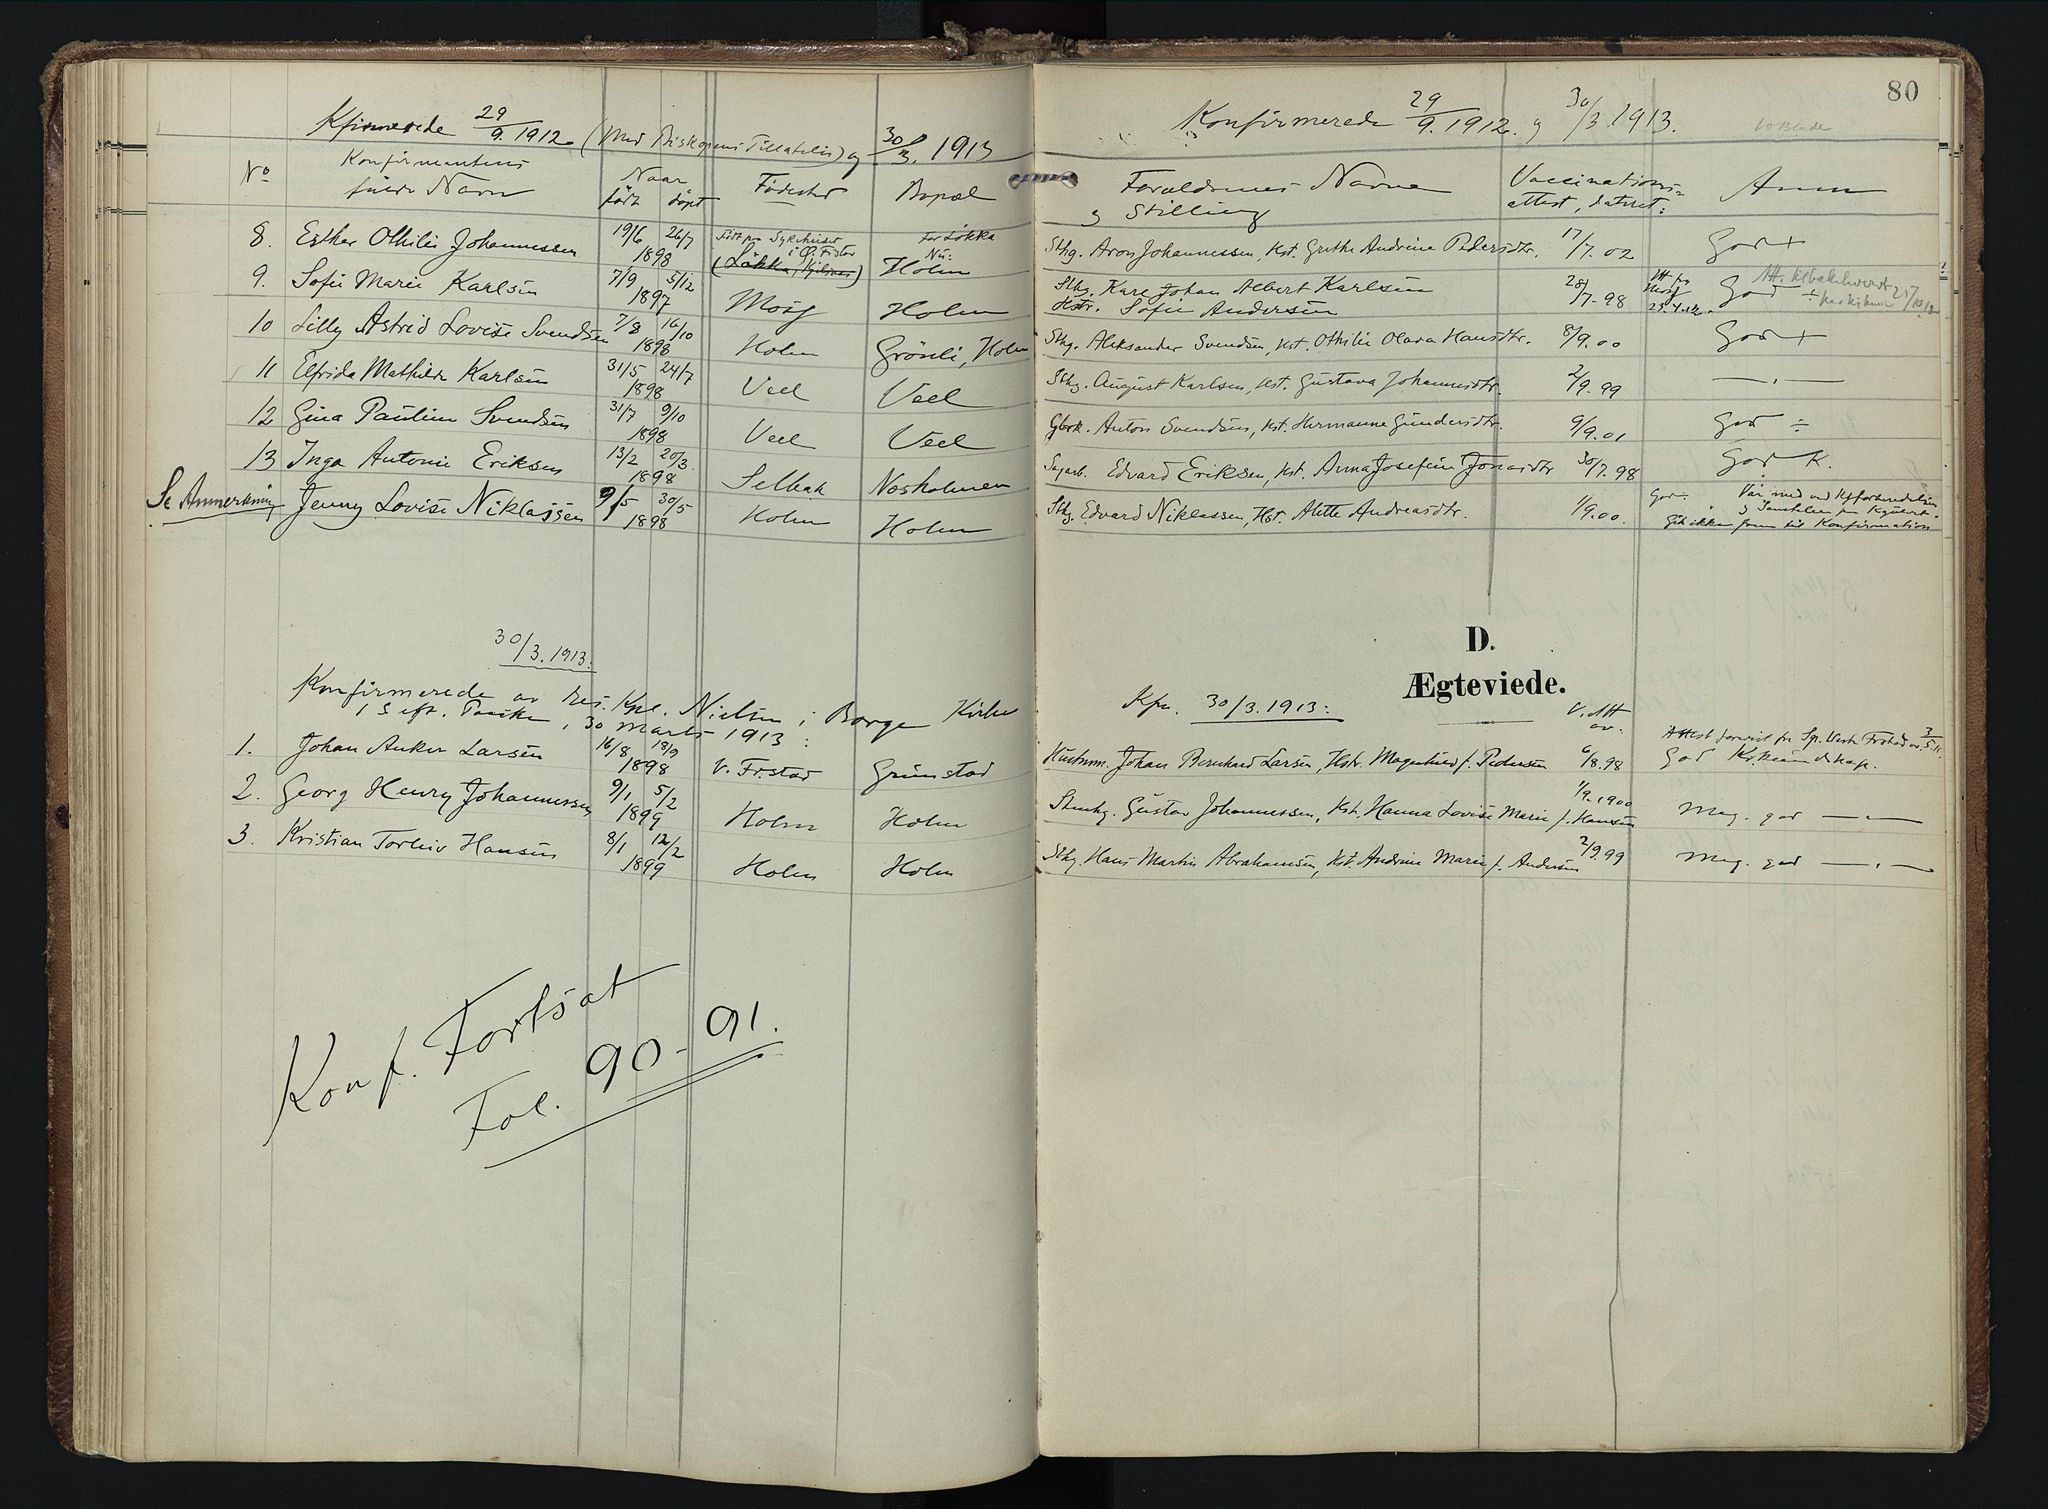 Kfirmerede 29/9. 1912. (Med Biskopens Tillatelse) og 30/3. 1913
No
Konfirmantens fulde Navn
Naar født døpt
Fødested
Bopæl
8. Esther Othilie Johannessen 19/6 26/7 1898 født paa Sykehuset i Ø. Fr.stad (Løkka, Kjølner) før Løkka Nu: Holm
9. Sofie Marie Karlsen 7/9 5/12 1897 Moss Holm
10 Lilly Astrid Lovise Svendsen 7/8 16/10 1898 Holm Grönli, Holm
11 Elfrida Mathilde Karlsen 31/5 24/7 1898 Veel Veel
12 Gina Pauline Svendsen 31/7 9/10 1898 Veel Veel
13 Inga Antonie Eriksen 13/2 20/3. 1898 Selbak Nosholmen
Se Anmerkning Jenny Lovise Niklassen 9/5 30/5 1898 Holm Holm
30/3. 1913:
Konfirmerede av res. Kpl. Nielsen i Borge Kirke
1 S. eft. Paaske, 30 marts 1913:
1. Johan Anker Larsen 16/8 18/9 1898 V. Fr.stad Grimstad
2. Georg Henry Johannessen 9/1 5/2 1899 Holm Holm
3. Kristian Torleiv Hansen 8/1 12/2 1899 Holm Holm
Konf. Fortsat
Fol. 90-91.
80
Konfirmerede 29/9. 1912. og 30/3. 1913.
10 Blade
Forældrenes Navne og Stilling
Vaccinations-attest, dateret:
Anm
Sthg. Aron Johannessen, Hst. Grethe Andrine Pedersdtr. 17/7. 02 God +
Sthg. Karl Johan Albert Karlsen Hstr. Sofie Andersen 28/7-98 Att. fra Moss 25.4.12. God ÷ Att. tilbakeleveret 25/10.12
Sthg. Aleksander Svendsen, Hst. Othilie Olava Hansdtr. 8/9. 00 God +
Sthg. August Karlsen, Hst. Gustava Johannesdtr. 2/9. 99 — . —
Gbrk. Anton Svendsen, Hst. Hermanne Gundersdtr. 9/9. 01 God ÷
Sagarb. Edvard Eriksen, Hst. Anna Josefine Jonasdtr 30/7. 98 God K.
Sthg. Edvard Niklassen, Hst. Alette Andreasdtr. 1/9. 00. God. Var med ved Kfforberedelsen
Gik ikke frem til Konfirmation
D.
Ægteviede.
Kfn. 30/3. 1913:
V. Att av.
Attest forevist fra Sp. Vestre Fr.stad av 3/5 11.
Hustmm. Johan Bernhard Larsen, Hstr. Magnhild f. Pedersen 6/8. 98 God Kr. kundskap.
Stenhg. Gustav Johannessen, Hst. Hanna Lovise Marie f. Hansen 1/9. 1900 Meg. god — . —
Sthg. Hans Martin Abrahamsen, Hst. Andrine Marie f. Andersen 2/9. 99 Meg. god — . —